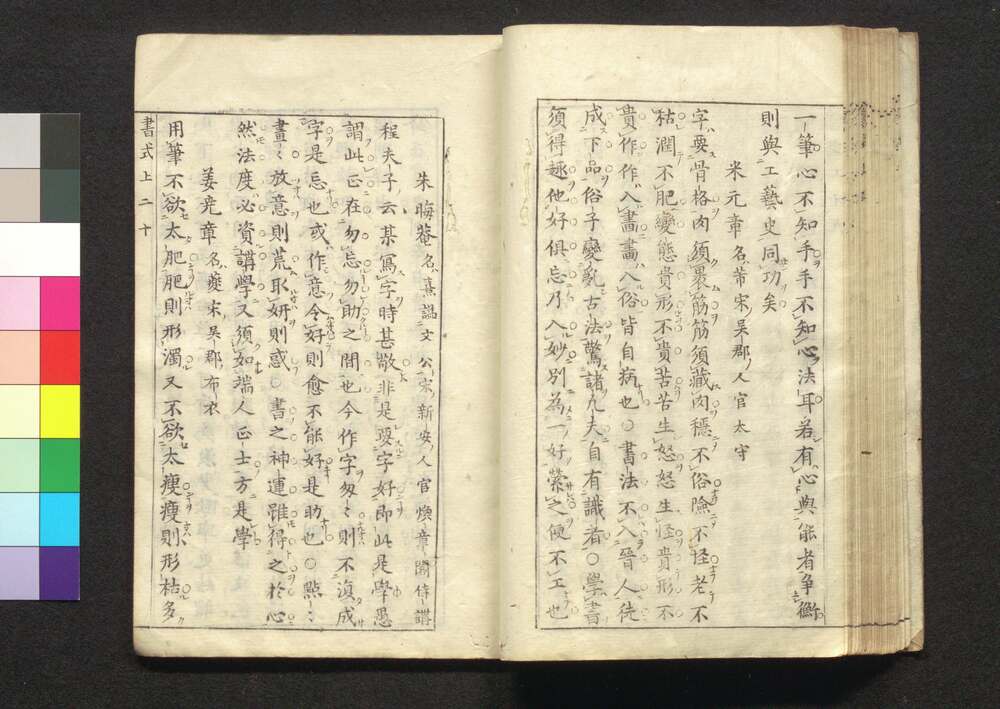 一筆心不知手手不知心法耳若有心與能者争衡
則與工藝史同功矣
米元章名芾宋吳郡人官太守
字要骨格肉須裹筋筋須藏肉穩不俗險不怪老不
枯潤不肥變態貴形不貴苦苦生怒怒生怪貴形不
貴作作入畫畫入俗皆自病也○書法不入晉人徒
成下品俗子變亂古法驚諸凡夫自有識者○學書
須得趣他好俱忘乃入妙別為一好縈之便不工也
朱晦菴名熹謚文公宋新安人官煥章閣侍講
程夫子云某寫字時甚敬非是要字好即此是學愚
謂此正在勿忘勿助之間也今作字匆〻則不復成
字是忘也或作意令好則愈不能好是助也○點〻
畫〻放意則荒取妍則惑○書之神運雖得之於心
然法度必資講學又須如端人正士方是學
姜堯章名夔宋吳郡布衣
用筆不欲太肥肥則形濁又不欲太瘦瘦則形枯多
書式上 二十